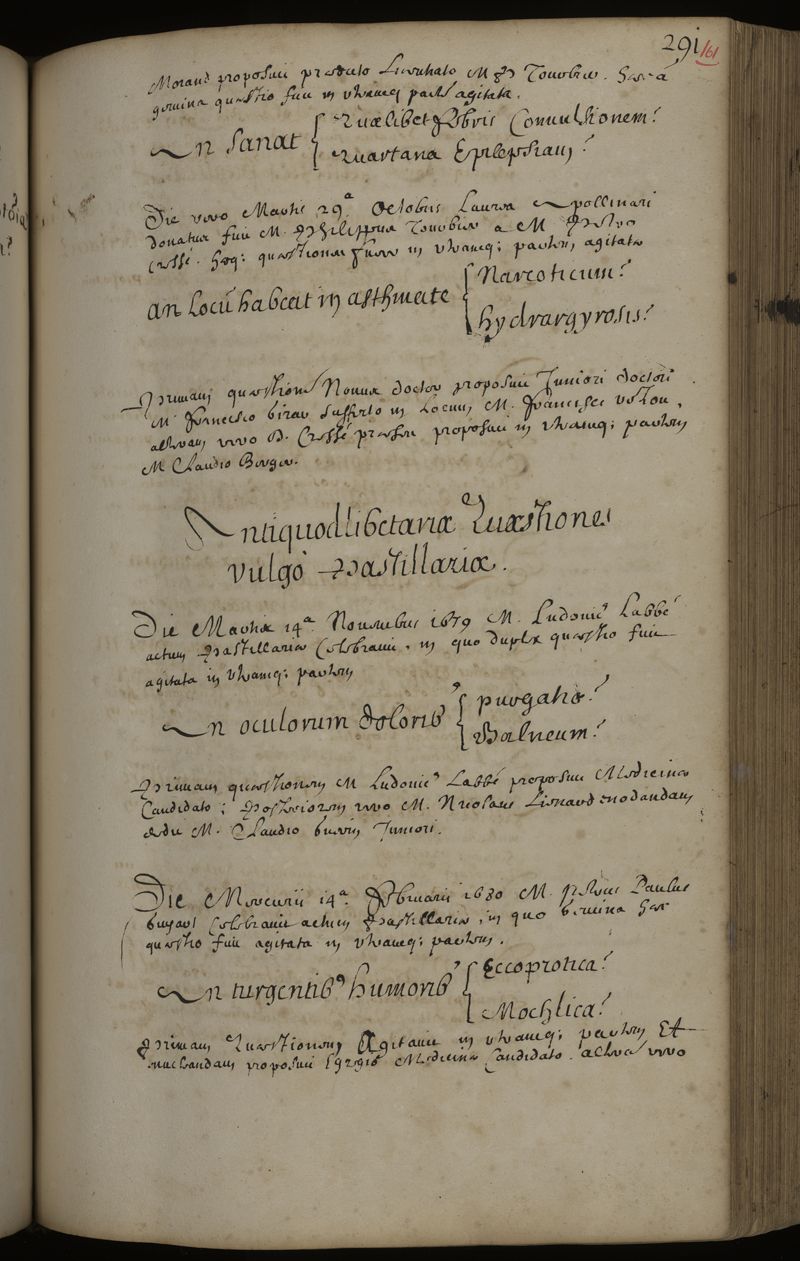 291 161
Morand proposuit M Ph Douvbie. Haec
gemina quaestio fuit in utramq; partē agitata.
An sanat { Quaelibet febris Convulsionem?
Quartana Epilepsiam?
Die vero Martis 29ᵃ Octobris Laurea Apollinari
donatus fuit M. Philippus a M Petro
Cressé. Haeq: quaestiones fuere in utramq; partem agitatae
An Locū habeat in asthmate { Narcoticum?
hydrargyrosis?
Primam quaestionē Novus doctor proposuit Juniori doctori
M. Francisco suffecto in Locum M. Francisci
alteram vero D. Cressé praeses proposuit in utramq; partem
M Claudio Berger.
Antiquodlibetariæ Quæstiones
vulgò Pastillariæ.
Die Martis 14ᵃ Novembris 1679 M. Ludovicꝰ Labbé
actum Pastillariae Celebravit, in quo duplex quaestio fuit
agitata in utramq; partem
An oculorum doloribꝰ { purgatio?
Balneum?
Primam quaestionem M Ludovicꝰ Labbé proposuit Medicinae
Candidato; Posteriorem vero M. Nicolaus Lienard enodandam
dedit M. Claudio Juniori.
Die Mercurii 14ᵃ februarii 1680 M. Petrus Paulus
Guyart Celebravit actum Pastillariae, in quo gemina haec
quaestio fuit agitata in utramq; partem.
An turgentibꝰ humoribꝰ { Eccoprotica?
Mochlica?
Primam Quaestionem Agitavit in utramq; partem Et
enucleandam proposuit Medicinae Candidato. altera vero